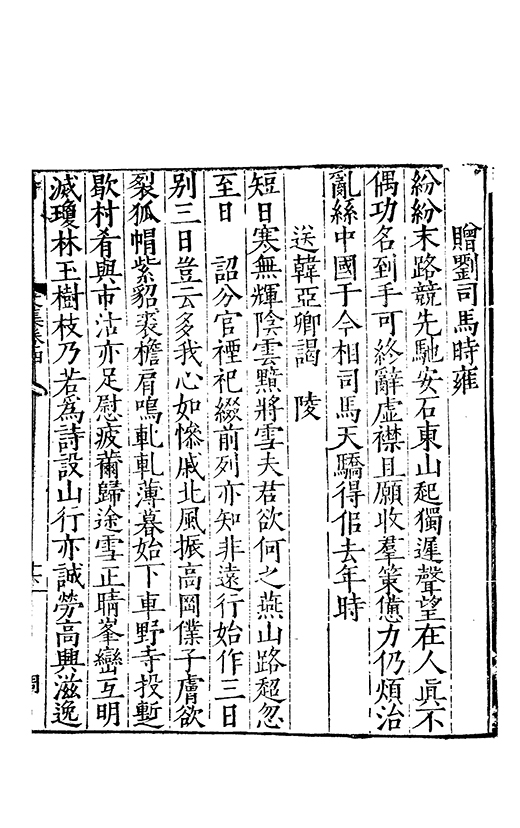 贈劉司馬時雍
紛紛末路競先馳安石東山起獨遲聲望在人眞不
偶功名到手可終辭虛襟且願收羣策憊力仍煩治
亂絲中國于今相司馬天驕得佀去年時
送韓亞卿謁　陵
短日寒無輝陰雲黯將雪夫君欲何之燕山路超忽
至日　詔分官禋祀綴前列亦知非遠行始作三日
别三日豈云多我心如慘戚北風振高岡僕子膚欲
裂狐帽紫貂裘檐肩鳴軋軋薄暮始下車野寺投蹔
歇村肴與市沽亦足慰疲薾歸途雪正晴峯巒互明
滅瓊林玉樹枝乃若為詩設山行亦誠勞高興滋逸